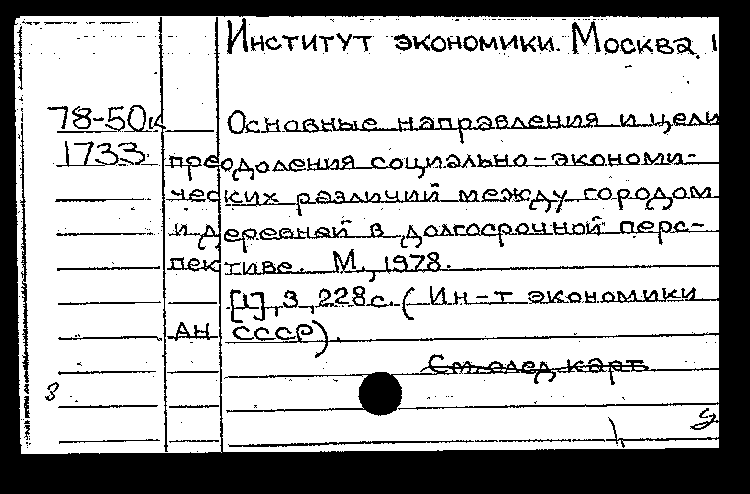 Институт экономики. Москва. 1
78-50к Основные направления и цели
1733 преодоления социально-экономи-
ческих различий между городом
и деревней в долгосрочной перс-
пективе. М., 1978.
[1], 3, 228 с. (Ин-т экономики
АН СССР).
См. след. карт.